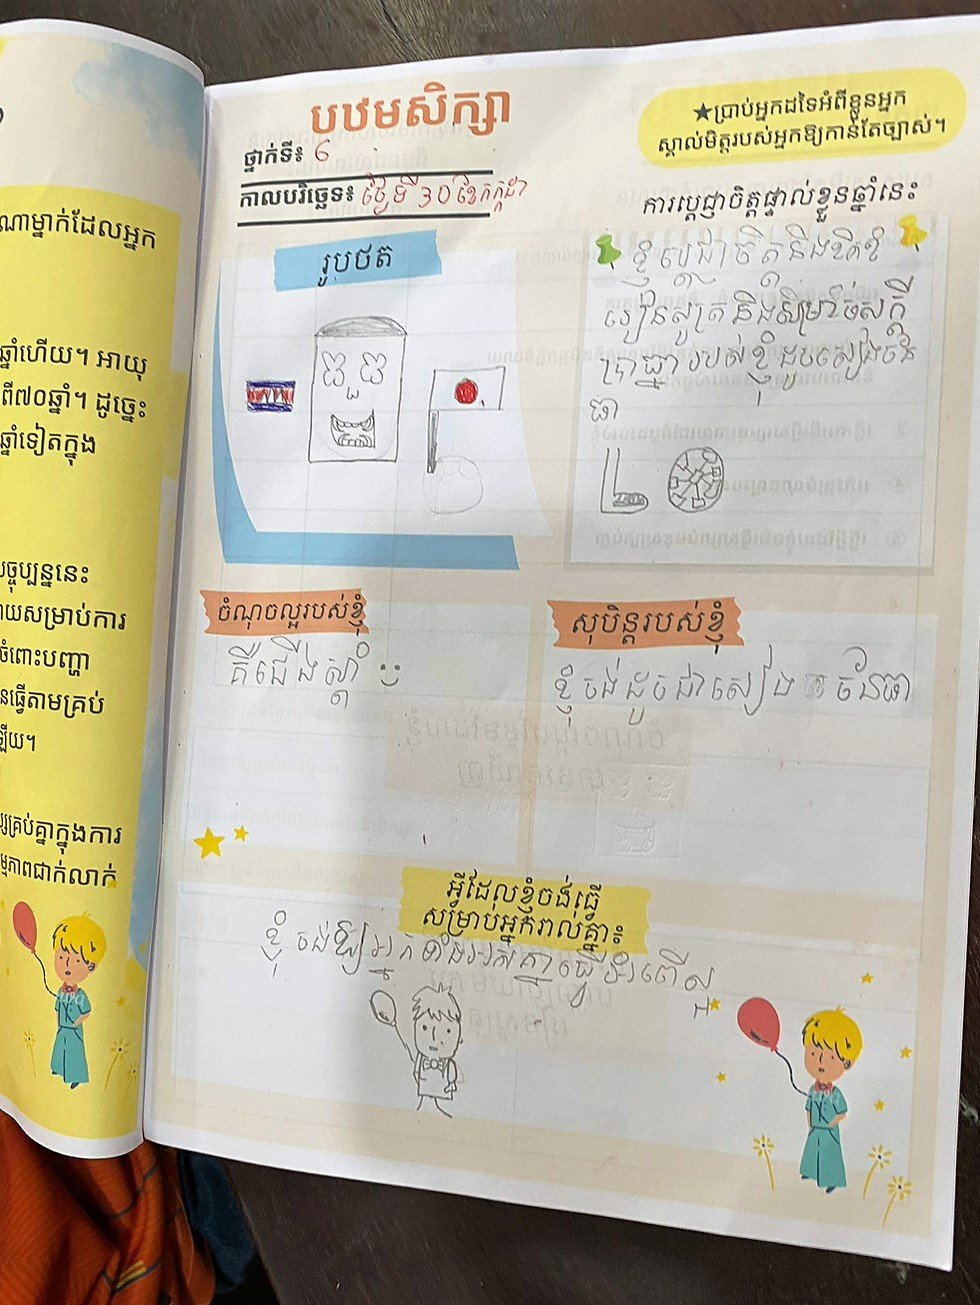 ណាម្នាក់ដែលអ្នក
ឆ្នាំហើយ។ អាយុ
ពី៧០ឆ្នាំ។ ដូច្នេះ
ឆ្នាំទៀតក្នុង
បច្ចុប្បន្ននេះ
រាយសម្រាប់ការ
ចំពោះបញ្ហា
នធ្វើតាមគ្រប់
ឡើយ។
គ្រប់គ្នាក្នុងការ
ភាពជាក់លាក់
បឋមសិក្សា
ថ្នាក់ទី៖ 6
កាលបរិច្ឆេទ៖ ថ្ងៃទី 30 ខែកក្កដា
★ប្រាប់អ្នកដទៃអំពីខ្លួនអ្នក
ស្គាល់មិត្តរបស់អ្នកឱ្យកាន់តែច្បាស់។
រូបថត
ការប្តេជ្ញាចិត្តផ្ទាល់ខ្លួនឆ្នាំនេះ
ខ្ញុំប្តេជ្ញាចិត្តនិងខិតខំ
រៀនសូត្រនិងសម្រេចសក្តី
ប្រាថ្នារបស់ខ្ញុំដូចសៀងច័ន
ធា
ចំណុចល្អរបស់ខ្ញុំ
គឺជើងស្តាំ
សុបិន្តរបស់ខ្ញុំ
ខ្ញុំចង់ដូចជាសៀង ច័នធា
អ្វីដែលខ្ញុំចង់ធ្វើ
សម្រាប់អ្នករាល់គ្នា៖
ខ្ញុំចង់ឱ្យអ្នកទាំងអស់គ្នាធ្វើ